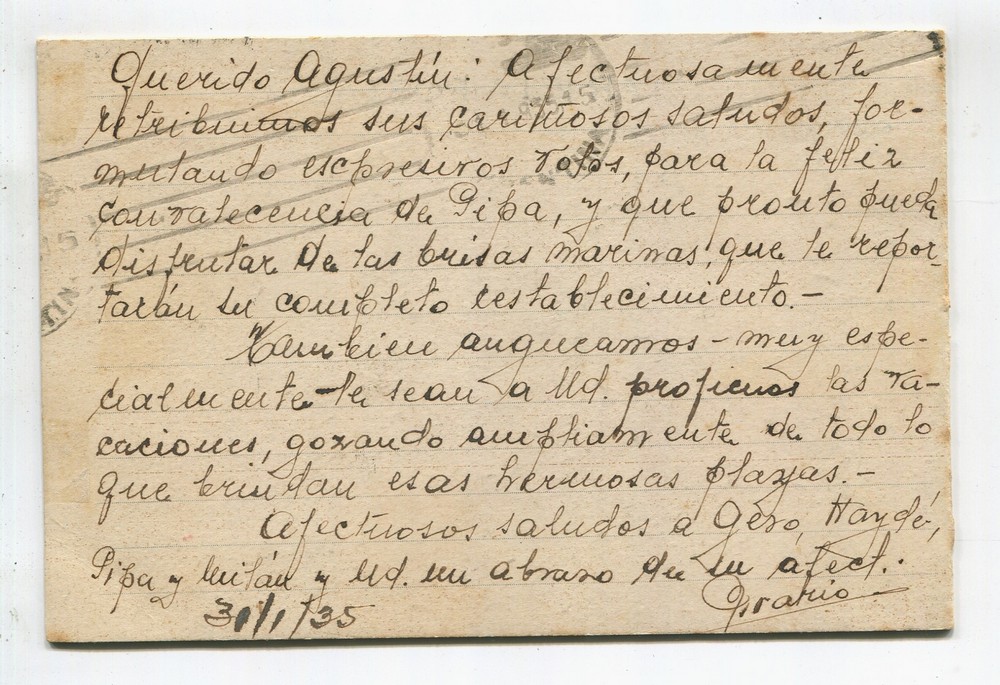 Querido Agustín: Afectuosamente
retribuimos sus cariñosos saludos, for-
mulando eschresivos votos, para la feliz
convalecencia de Pipa, y que pronto pueda
disfrutar de las brisas marinas, que le repor-
tarán su completo restablecimiento.-
Tambien auguramos - muy espe-
cialmente - le sean a Ud. proficuos las va-
caciones, gozando ampliamente de todo lo
que brindan esas hermosas playas.-
Afectuosos saludos a Gero, Haydé,
Pipa y Milán y Ud. un abrazo de su afect.
31/1/35